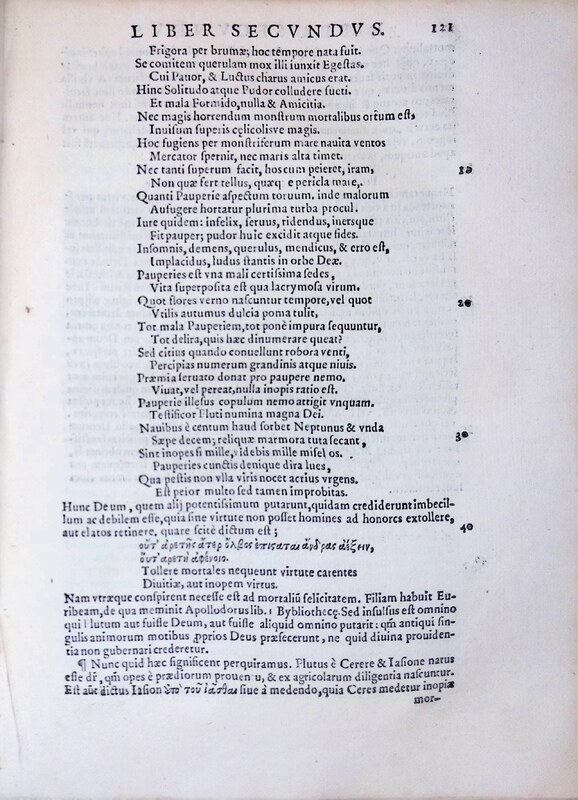 LIBER SECVNDVS. 121
Frigora per brumæ; hoc tempore nata fuit.
Se comitem querulam mox illi iunxit Egestas.
Cui Pauor, & Luctus charus amicus erat.
Hinc Solitudo atque Pudor colludere sueti.
Et mala Formido, nulla & Amicitia.
Nec magis horrendum monstrum mortalibus ortum est,
Inuisum superis cęlicolisve magis.
Hoc fugiens per monstriferum mare nauita ventos
Mercator spernit, nec maris alta timet.
Nec tanti superum facit, hos cum peieret, iram, 10
Non quæ fert tellus, quæq e pericla maie,.
Quanti Pauperie aspectum toruum. inde malorum
Aufugere hortatur plurima turba procul.
Iure quidem: infelix, seruus, ridendus, inersque
Fit pauper; pudor huic excidit atque fides.
Insomnis, demens, querulus, mendicus, & erro est,
Implacidus, ludus stantis in orbe Deæ.
Pauperies est vna mali certissima sedes,
Vita superposita est qua lacrymosa virum.
Quot flores verno nascuntur tempore, vel quot 20
Vtilis autumus dulcia poma tulit,
Tot mala Pauperiem, tot ponè impura sequuntur,
Tot delira, quis hæc dinumerare queat?
Sed citius quando conuellunt robora venti,
Percipias numerum grandinis atque niuis.
Præmia seruato donat pro paupere nemo.
Viuat, vel pereat, nulla inopis ratio est.
Pauperie illesus copulum nemo attigit vnquam.
Testificor Fluti numina magna Dei.
Nauibus è centum haud sorbet Neptunus & vnda
Sæpe decem; reliquæ marmora tuta secant, 30
Sint inopes si mille, videbis mille misel os.
Pauperies cunctis denique dira lues,
Qua pestis non vlla viris nocet acrius vrgens.
Est peior multo sed tamen improbitas.
Hunc Deum, quem alij potentissimum putarunt, quidam crediderunt imbecil-
lum ac debilem esse, quia sine virtute non posset homines ad honores extollere,
aut elatos retinere. quare scitè dictum est; 40
οὔτ' ἀρετῆς ἄτερ ὄλβος ἐπίσταται ἄνδρας ἀέξειν,
οὔτ' ἀρετὴ ἀφένοιο.
Tollere mortales nequeunt virtute carentes
Diuitiæ, aut inopem virtus.
Nam vtræque conspirent necesse est ad mortaliũ felicitatem. Filiam habuit Eu-
ribeam, de qua meminit Apollodorus lib. 1 Bybliothecę. Sed insulsus est omnino
qui Flutum aut fuisse Deum, aut fuisse aliquid omnino putarit: qm̃ antiqui sin-
gulis animorum motibus ꝓprios Deus præfecerunt, ne quid diuina prouiden-
tia non gubernari crederetur.
¶ Nunc quid hæc significent perquiramus. Plutus è Cerere & Iasione natus
esse dr̃, qm̃ opes è prædiorum prouen u, & ex agricolarum diligentia nascuntur.
Est aũt dictus Iasion ὑπὸ τοῦ ἰᾶσθαι siue à medendo, quia Ceres medetur inopiæ
mor-